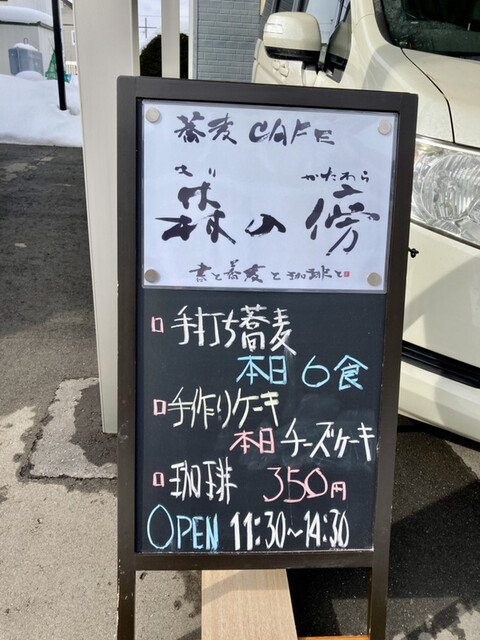 蕎麦 CAFE
もり かたわら
森の傍
書と蕎麦と珈琲と
手打ち蕎麦
本日 6食
手作りケーキ
本日 チーズケーキ
珈琲 350円
OPEN 11:30~14:30